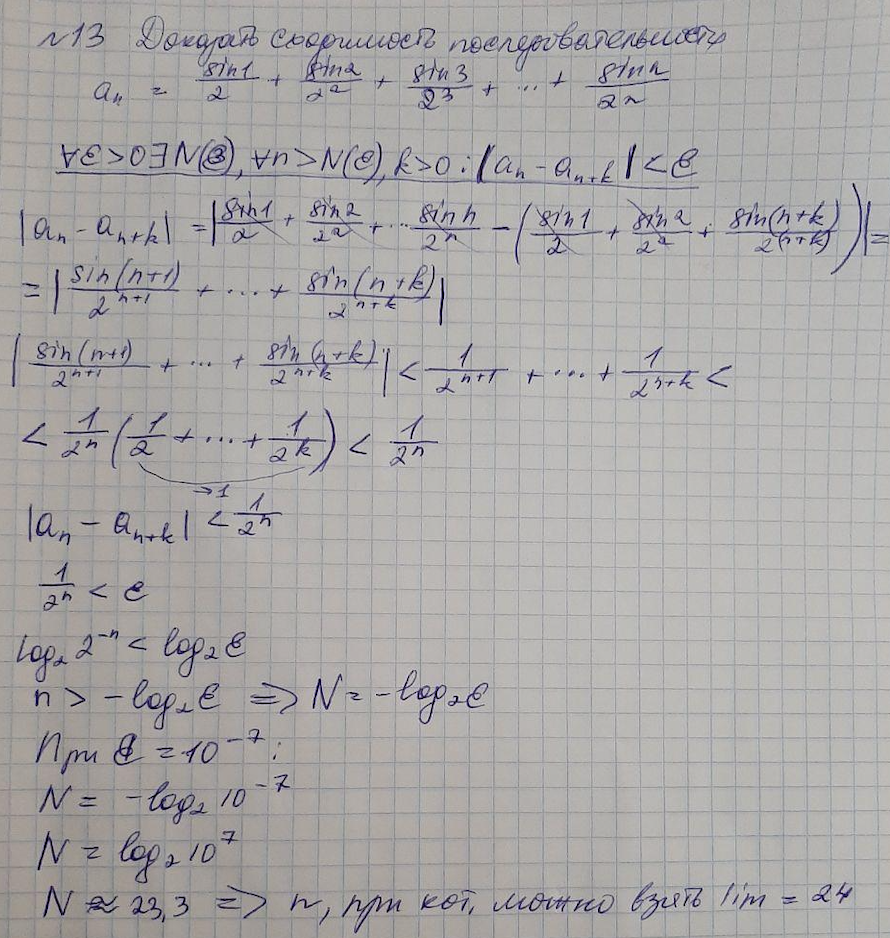 №13 Доказать сходимость последовательности
aₙ = sin1/2 + sin2/2² + sin3/2³ + ... + sin n/2ⁿ
∀ε>0∃N(ε), ∀n>N(ε), k>0: |aₙ - aₙ₊ₖ| < ε
|aₙ - aₙ₊ₖ| = |sin1/2 + sin2/2² + ... sin n/2ⁿ - (sin1/2 + sin2/2² + sin(n+k)/2^(n+k))| =
= |sin(n+1)/2^(n+1) + ... + sin(n+k)/2^(n+k)|
|sin(n+1)/2^(n+1) + ... + sin(n+k)/2^(n+k)| < 1/2^(n+1) + ... + 1/2^(n+k) <
< 1/2ⁿ (1/2 + ... + 1/2ᵏ) < 1/2ⁿ
→1
|aₙ - aₙ₊ₖ| < 1/2ⁿ
1/2ⁿ < ε
log₂ 2⁻ⁿ < log₂ε
n > -log₂ε => N = -log₂ε
При ε = 10⁻⁷:
N = -log₂ 10⁻⁷
N = log₂ 10⁷
N ≈ 23,3 => n, при кот. можно взять lim = 24